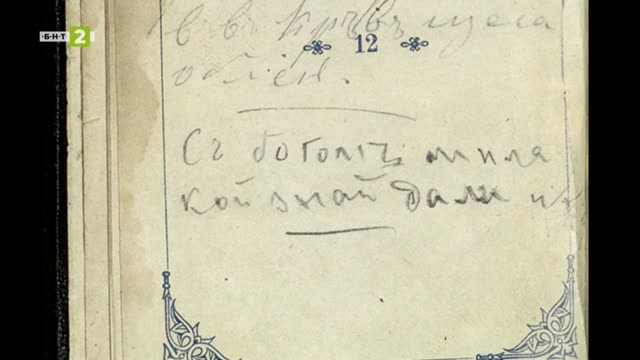 БНТ 2
въ кръвь цела
12
облен.
Съ богомъ мила
кой знай дали